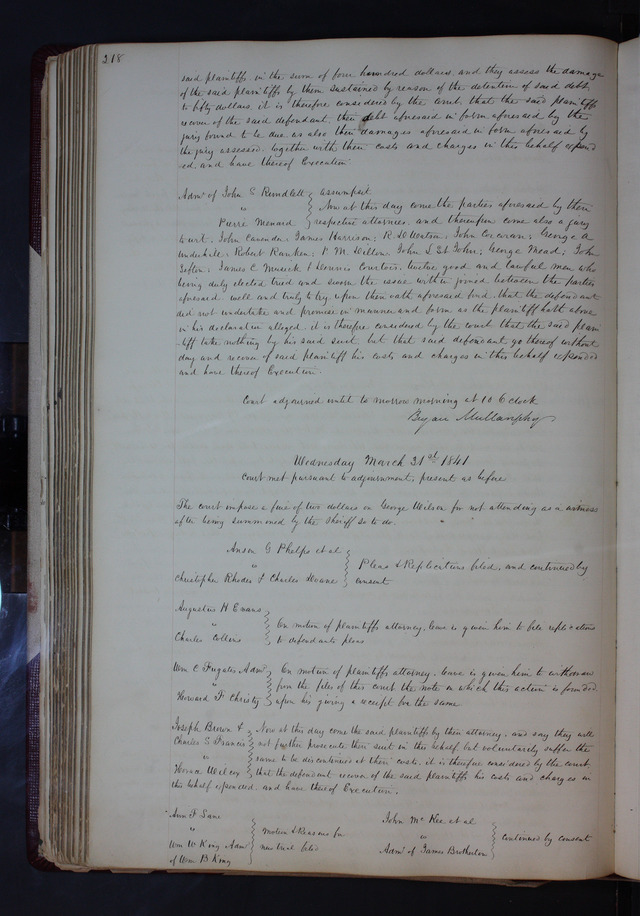 218
said plaintiffs in the sum of four hundred dollars, and they assess the damage
of the said plaintiffs by them sustained by reason of the detention of said debt
to fifty dollars, it is therefore considered by the court, that the said plaintiffs
recover of the said defendant, their debt aforesaid in form aforesaid by the
jury found to be due as also their damages aforesaid in form aforesaid by
the jury assessed, together with their costs and charges in this behalf expend
ed and have thereof Execution
Admr of John S Rundlett assumpsit
vs Now at this day come the parties aforesaid by their
Pierre Menard respective attornies, and thereupon come also a jury
to wit, John Cavender, James Harrison, John Corcoran, George A
Robert Ranken, P. M. Dillon, John L St John, George Mead, John
James C Musick & Dennis Courtois, twelve good and lawful men who
being duly elected tried and sworn the issue within joined between the parties
aforesaid well and truly to try upon their oath aforesaid find, that the defendant
did not undertake and promise in manner and form as the plaintiff hath above
in his declaration alleged, it is therefore considered by the court that the said plain
tiff take nothing by his said suit but that said defendant go thereof without
day and recover of said plaintiff his costs and charges in this behalf expended
and have thereof Execution.
Court adjourned until to morrow morning at 10 O clock
Bryan Mullanphy
Wednesday March 31st 1841
Court met pursuant to adjournment, present as before
The court impose a fine of two dollars on George Wilson for not attending as a witness
after being summoned by the Sheriff so to do.
Anson G Phelps et al
vs Pleas & Replications filed, and continued by
Christopher Rhodes & Charles consent
Augustus H Evans
vs On motion of plaintiffs attorney, leave is given him to file replications
Charles Collins to defendants pleas
Wm C Fugates Admr On motion of plaintiffs attorney, leave is given him to withdraw
vs from the files of this court the note on which this action is founded
Howard F Christy upon his giving a receipt for the same
Joseph Brown & Now at this day come the said plaintiffs by their attorney, and say they will
Charles S Francis not further prosecute their suit in this behalf but voluntarily suffer the
vs same to be discontinued at their costs, it is therefore considered by the court
Hiram Wilcox that the defendant recover of the said plaintiffs his costs and charges in
this behalf expended, and have thereof Execution.
Ann F Lane John Mc Kee et al
vs motion & Reasons for vs continued by consent
Wm W King Admr new trial filed Admr of James Brotherton
of Wm B King